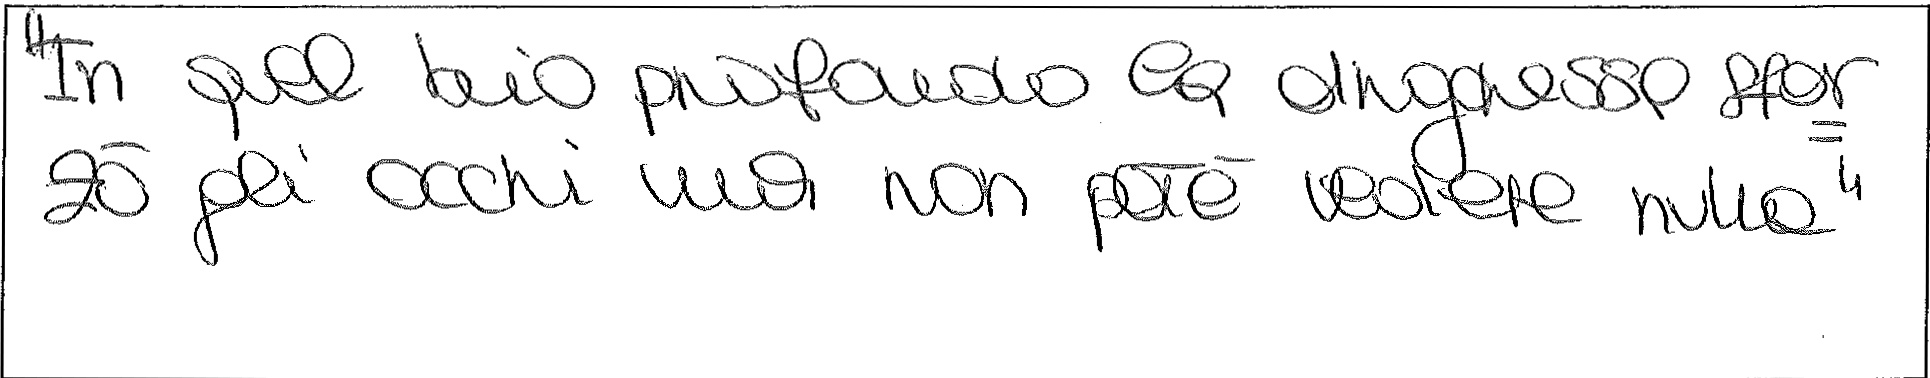 "In quel buio profondo la dragonessa sfor=
zò gli occhi ma non potè vedere nulla"